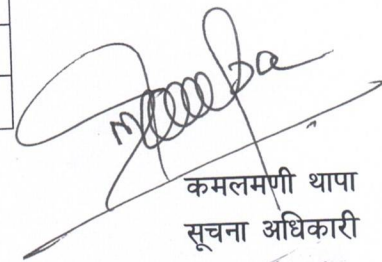 कमलमणी थापा
सूचना अधिकारी